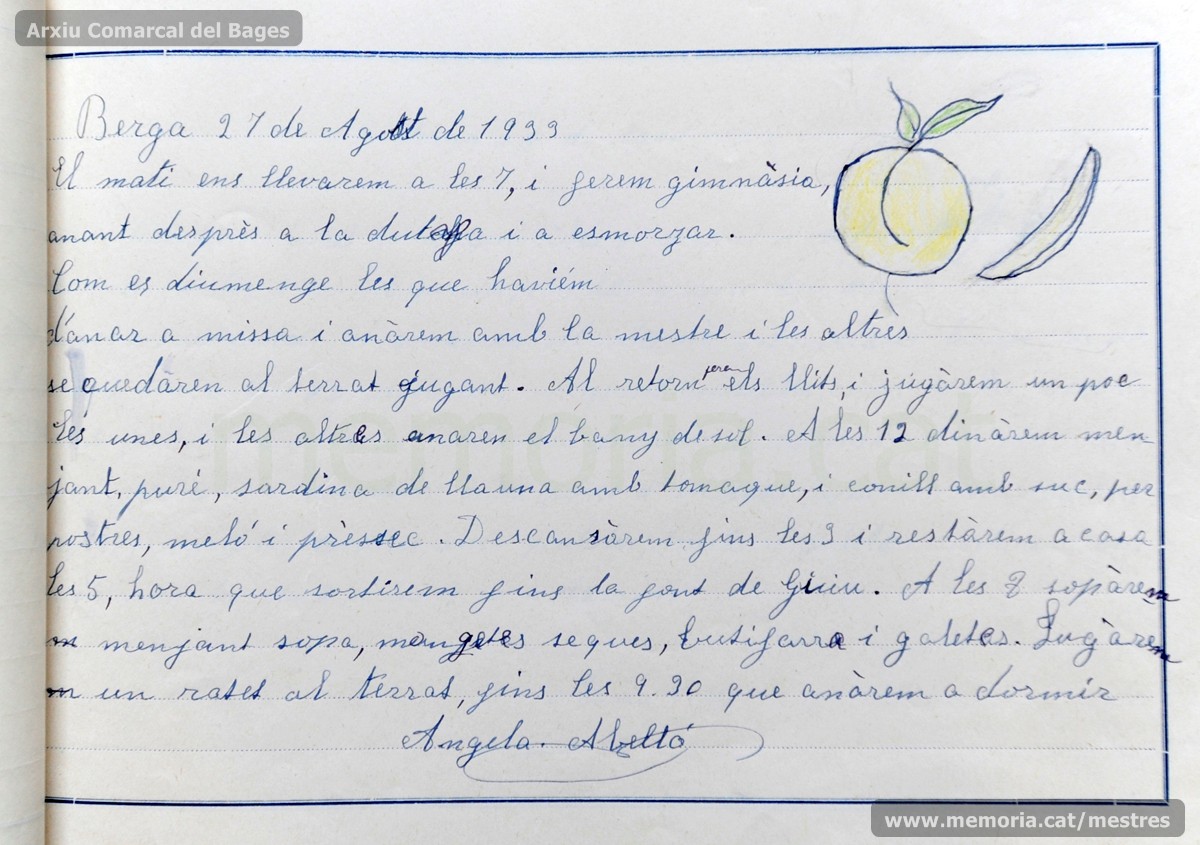 Arxiu Comarcal del Bages
Berga 27 de Agost de 1933
El mati ens llevarem a les 7, i ferem gimnàsia,
anant desprès a la dutxa i a esmorzar.
Com es diumenge les que haviém
d'anar a missa i anàrem amb la mestre i les altrès
se quedàren al terrat jugant. Al retorn ferem els llits, i jugàrem un poc
les unes, i les altres anaren el bany de sol. A les 12 dinàrem men-
jant, puré, sardina de llauna amb tomaque, i conill amb suc, per
postres, meló i prèssec. Descansàrem fins les 3 i restàrem a casa
les 5, hora que sortirem fins la font de Guiu. A les 8 sopàrem
menjant sopa, mongetes seques, butifarra i galetes. Jugàrem
un ratet al terrat, fins les 9.30 que anàrem a dormir
Angela
memoria.cat
www.memoria.cat/mestres